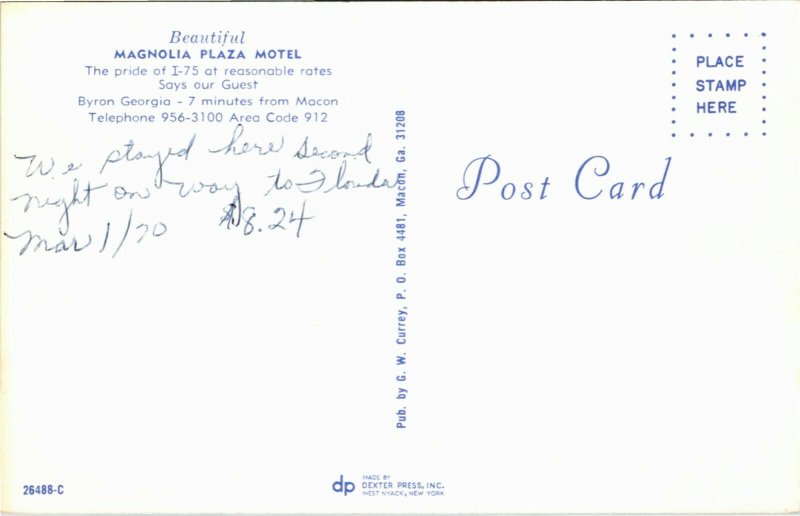 Beautiful
MAGNOLIA PLAZA MOTEL
The pride of I-75 at reasonable rates
Says our Guest
Byron Georgia - 7 minutes from Macon
Telephone 956-3100 Area Code 912
We stayed here second
night on way to Florida
Mar 1/70 $8.24
Pub. by G. W. Currey, P. O. Box 4481, Macon, Ga. 31208
PLACE
STAMP
HERE
Post Card
26488-C
dp
MADE BY
DEXTER PRESS, INC.
WEST NYACK, NEW YORK